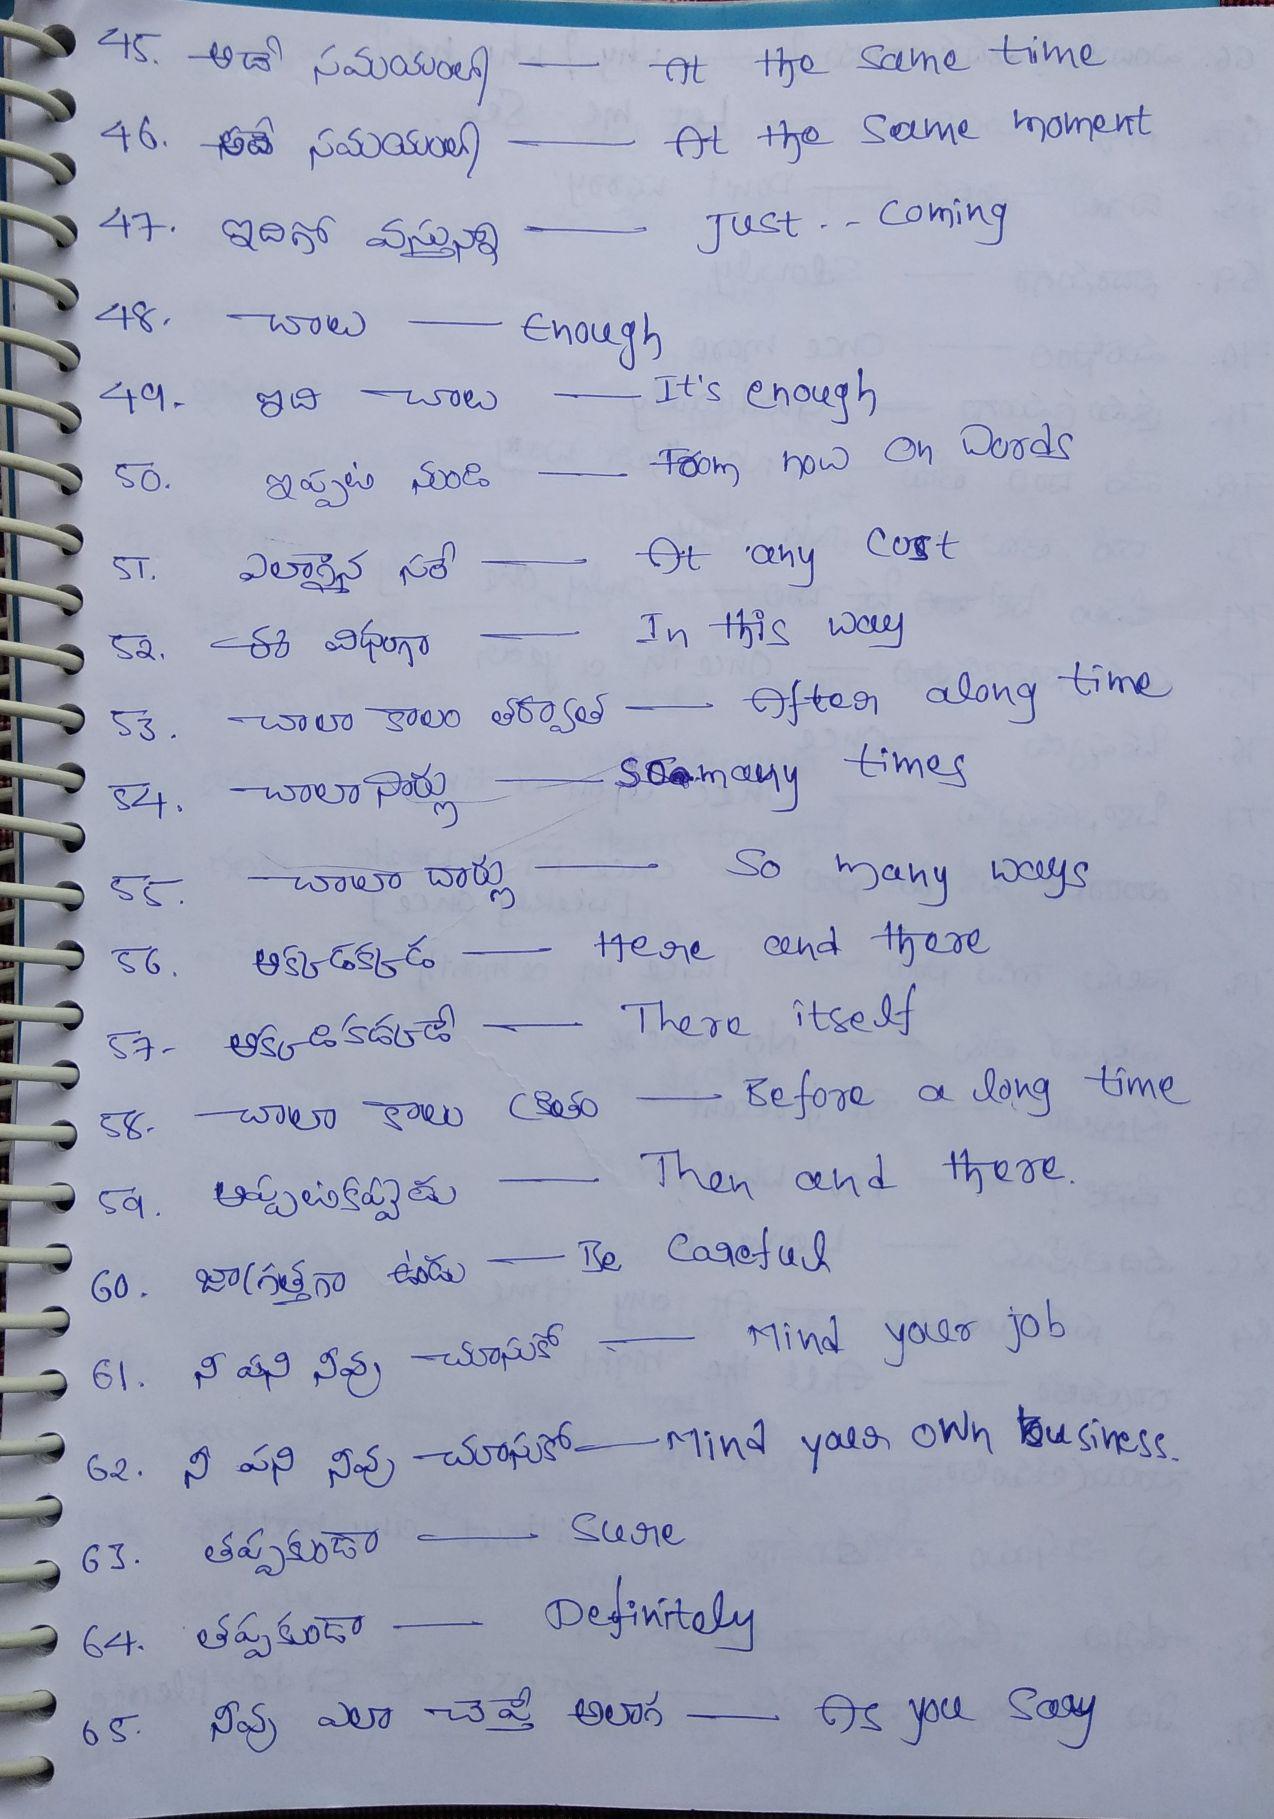 45. అదే సమయంలో — At the same time
46. అదే సమయంలో — At the same moment
47. ఇదిగో వస్తున్నా — Just .. coming
48. చాలు — Enough
49. ఇది చాలు — It's enough
50. ఇప్పటి నుండి — From now on words
51. ఎలాగైన సరే — At any cost
52. ఈ విధంగా — In this way
53. చాలా కాలం తర్వాత — After along time
54. చాలా సార్లు — So many times
55. చాలా దార్లు — So many ways
56. అక్కడక్కడ — Here and there
57. అక్కడికక్కడే — There itself
58. చాలా కాలం క్రితం — Before a long time
59. అప్పటికప్పుడు — Then and there.
60. జాగ్రత్తగా ఉండు — Be Careful
61. నీ పని నీవు చూసుకో — Mind your job
62. నీ పని నీవు చూసుకో — Mind your own business.
63. తప్పకుండా — Sure
64. తప్పకుండా — Definitely
65. నీవు ఎలా చెప్తే అలాగ — As you Say